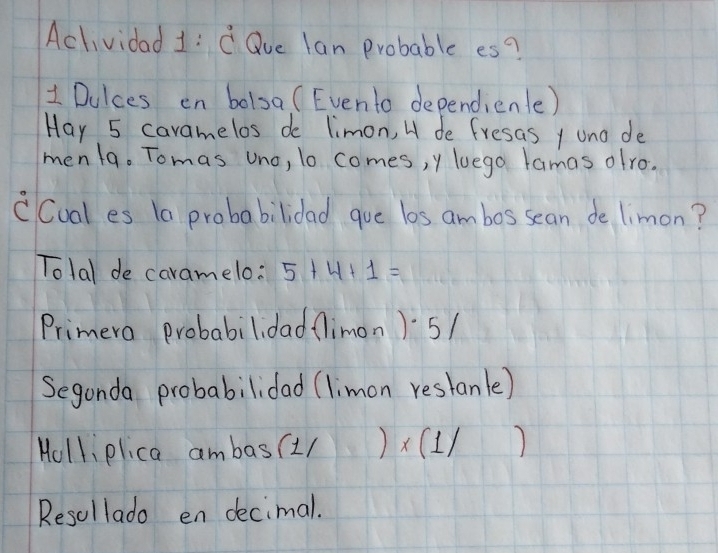 Actividad 1: ¿Que tan probable es?
1 Dulces en bolsa (Evento dependiente)
Hay 5 caramelos de limon, 4 de fresas y uno de
menta. Tomas uno, lo comes, y luego tamas otro.
¿Cual es la probabilidad que los ambos sean de limon?
Total de caramelo: 5+4+1=
Primera probabilidad (limon): 5/
Segunda probabilidad (limon restante)
Multiplica ambas (1/ ) x (1/ )
Resultado en decimal.